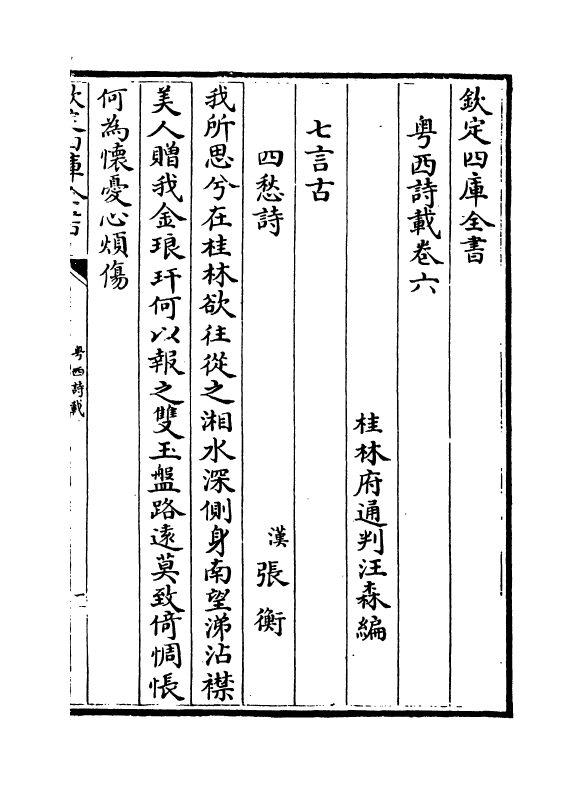 欽定四庫全書
粤西詩載卷六
桂林府通判汪森編
七言古
四愁詩
漢張衡
我所思兮在桂林欲往從之湘水深側身南望涕沾襟
美人贈我金琅玕何以報之雙玉盤路遠莫致倚惆悵
何為懷憂心煩傷
欽定四庫全書
粤西詩載